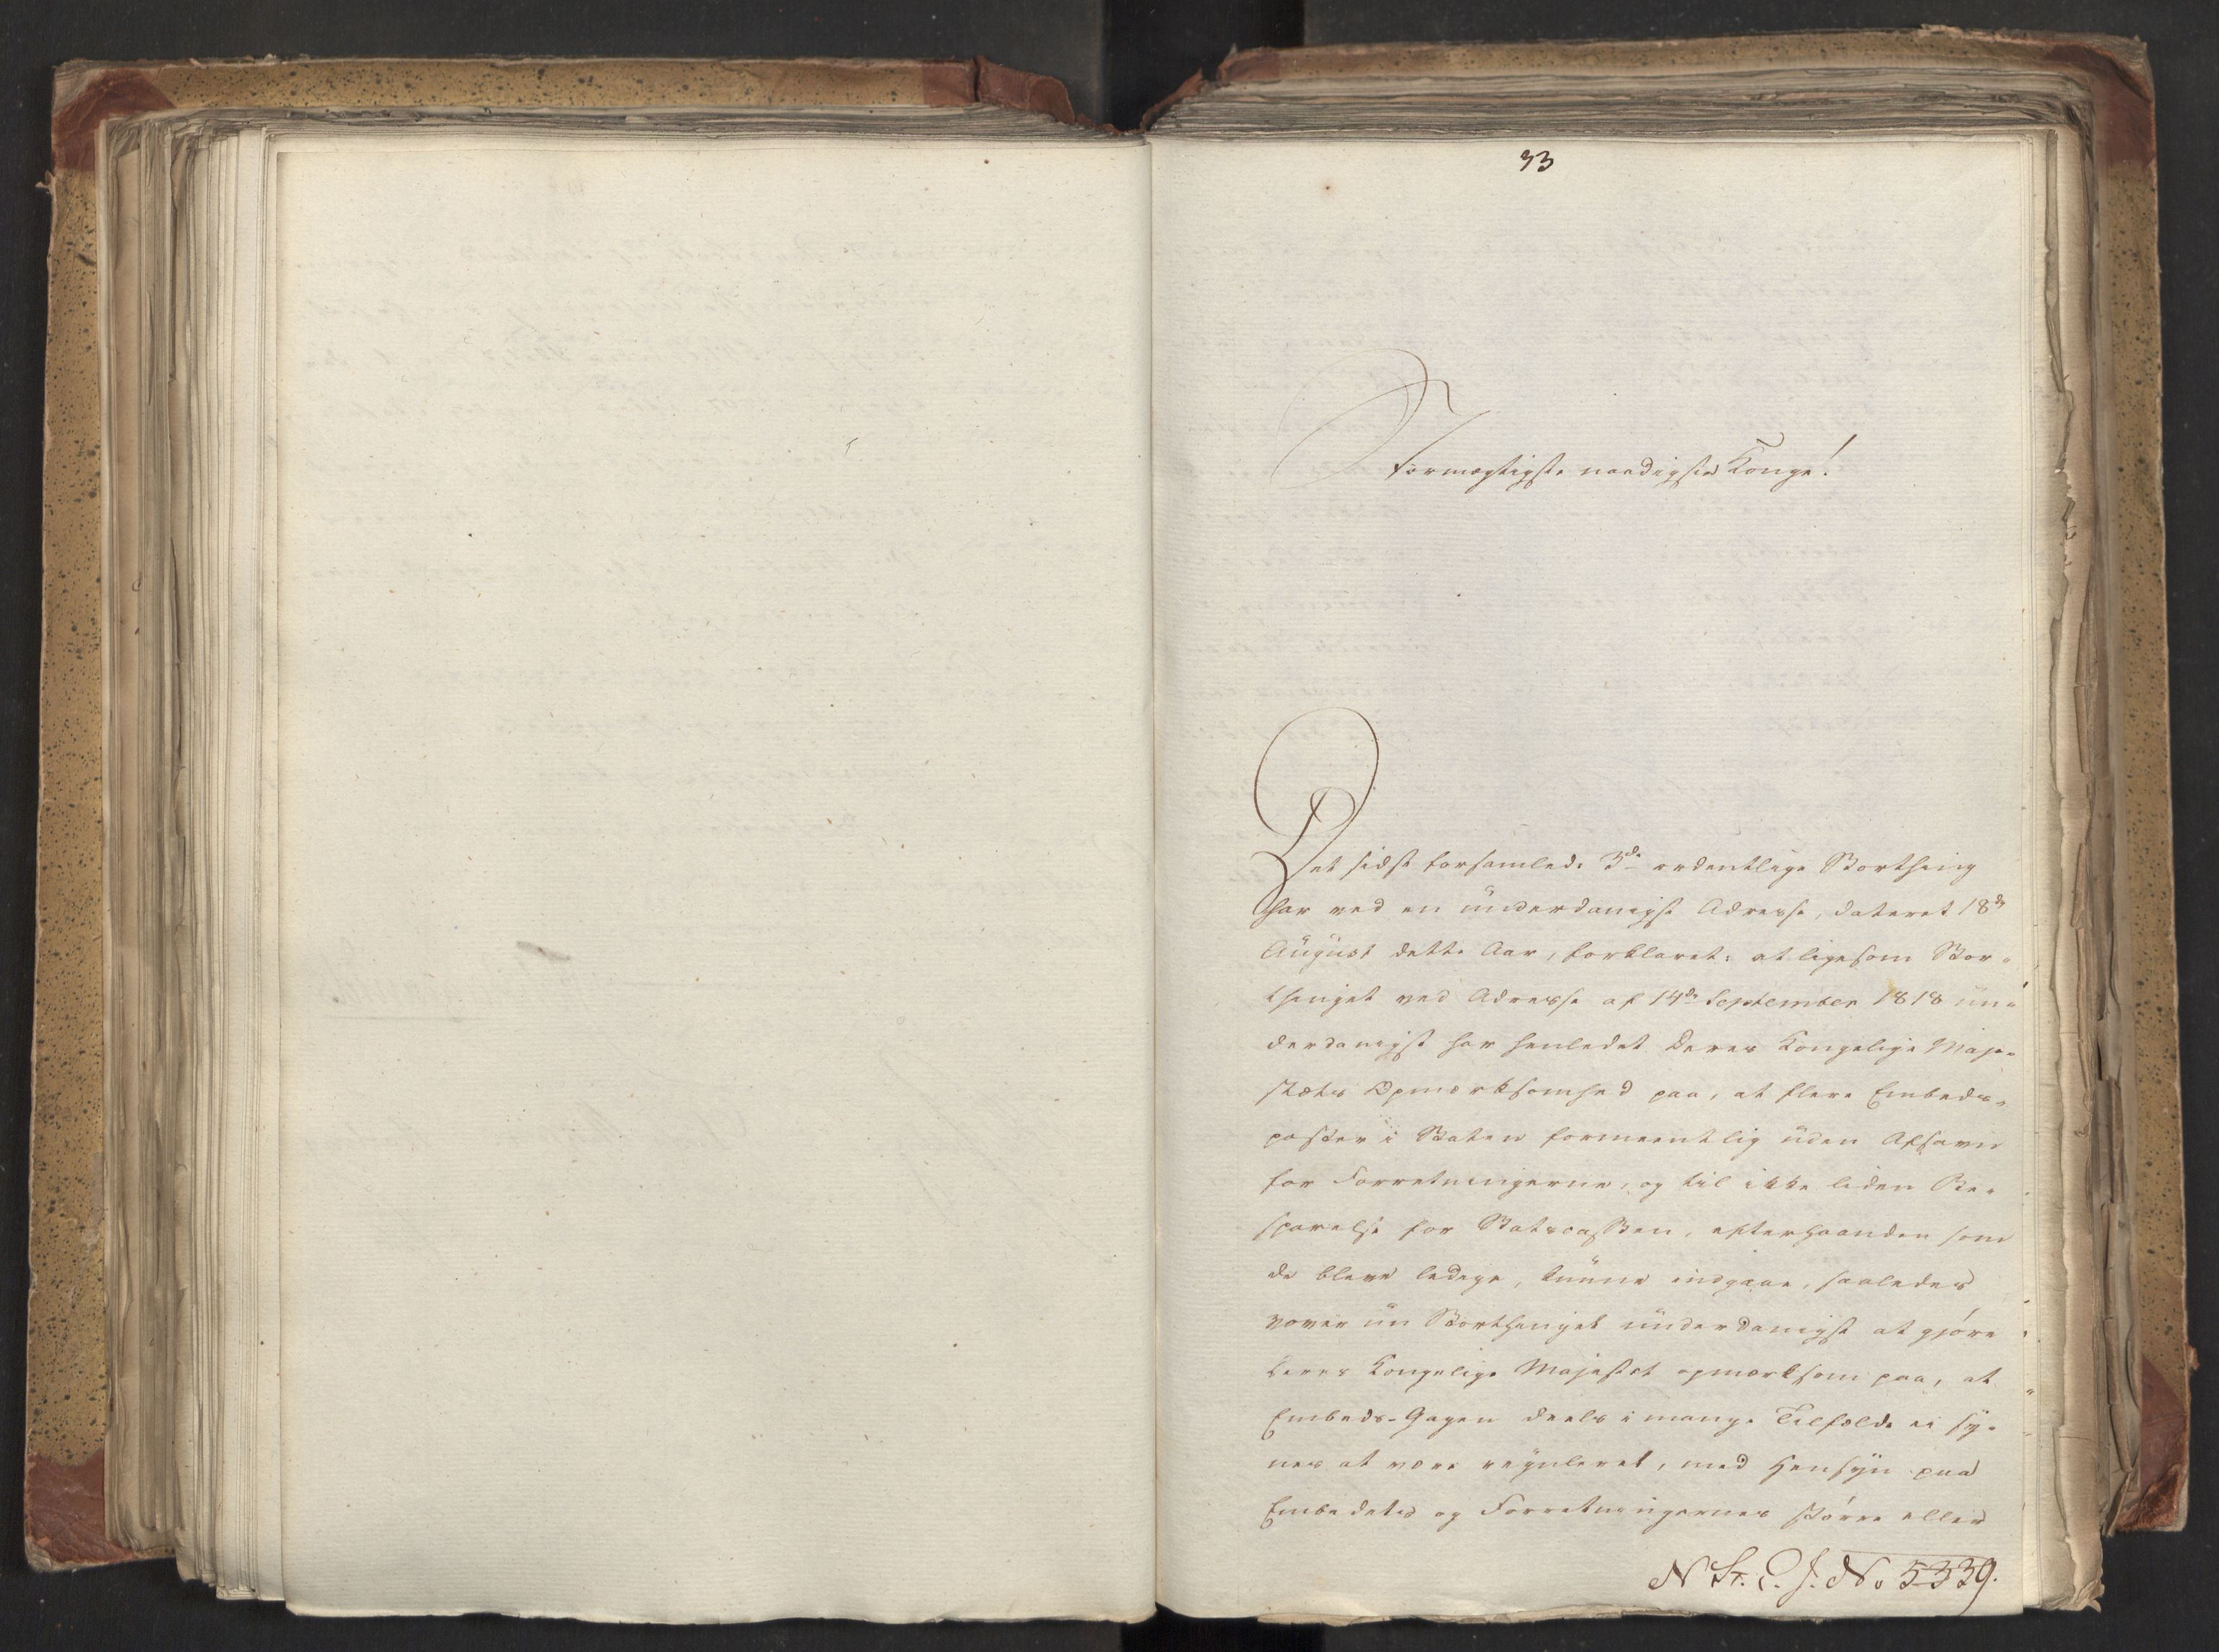 33
Stormægtigste naadigste Konge!
Det sidst forsamlede 3de ordentlige Storthing
har ved en ünderdanigst Adresse, dateret 18de
Aügüst dette Aar, forklaret: at ligesom Stor-
thinget ved Adresse af 14de September 1818 ün-
derdanigst har henledet Deres Kongelige Maje-
stæts Opmærksomhed paa, at flere Embeds-
poster i Staten formeentlig üden Afsavn
for Forretningerne, og til ikke liden Be-
sparelse for Statscassen, efterhaanden som
de bleve ledige, künne indgaae, saaledes
vover nü Storthinget ünderdanigst at gjöre
Deres Kongelige Majestæt opmærksom paa, at
Embeds-Gagen deels i mange Tilfælde ei sy-
nes at være reguleret, med Hensyn paa
Embedets og Forretningernes större eller
N. St. C. J. No 5339.